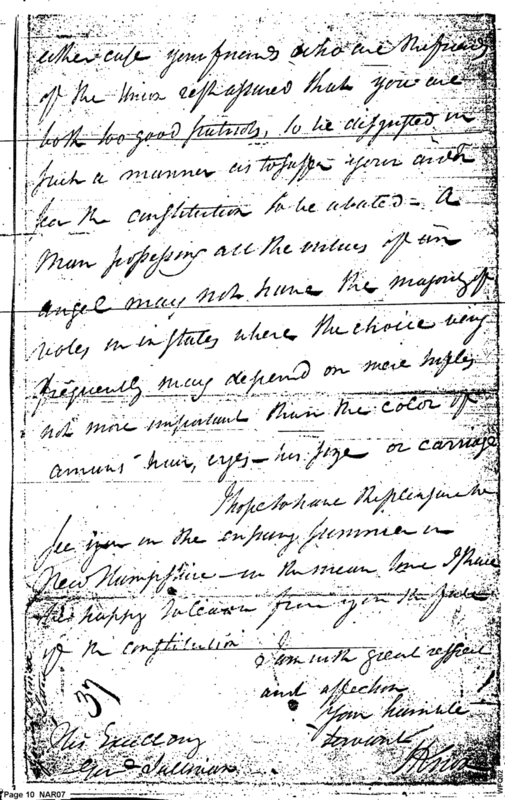 either case your friends who are the friends
of the Union rest assured that you are
both too good patriots, to be disgusted in
such a manner as to suffer your ardor
for the constitution to be abated – A
Man possessing all the virtues of an
angel may not have the majority of
votes in states where the choice very
frequently may depend on mere trifles
not more important than the color of
a mans hair, eyes – his size or carriage
I hope to have the pleasure to
see you in the ensuing summer in
New Hampshire – in the mean time I shall
be happy to learn from you the fate
of the constitution
I am with great respect
and affection
Your humble
servant
HKnox
37
His Excellency
Sullivan
Page 10 NAR07